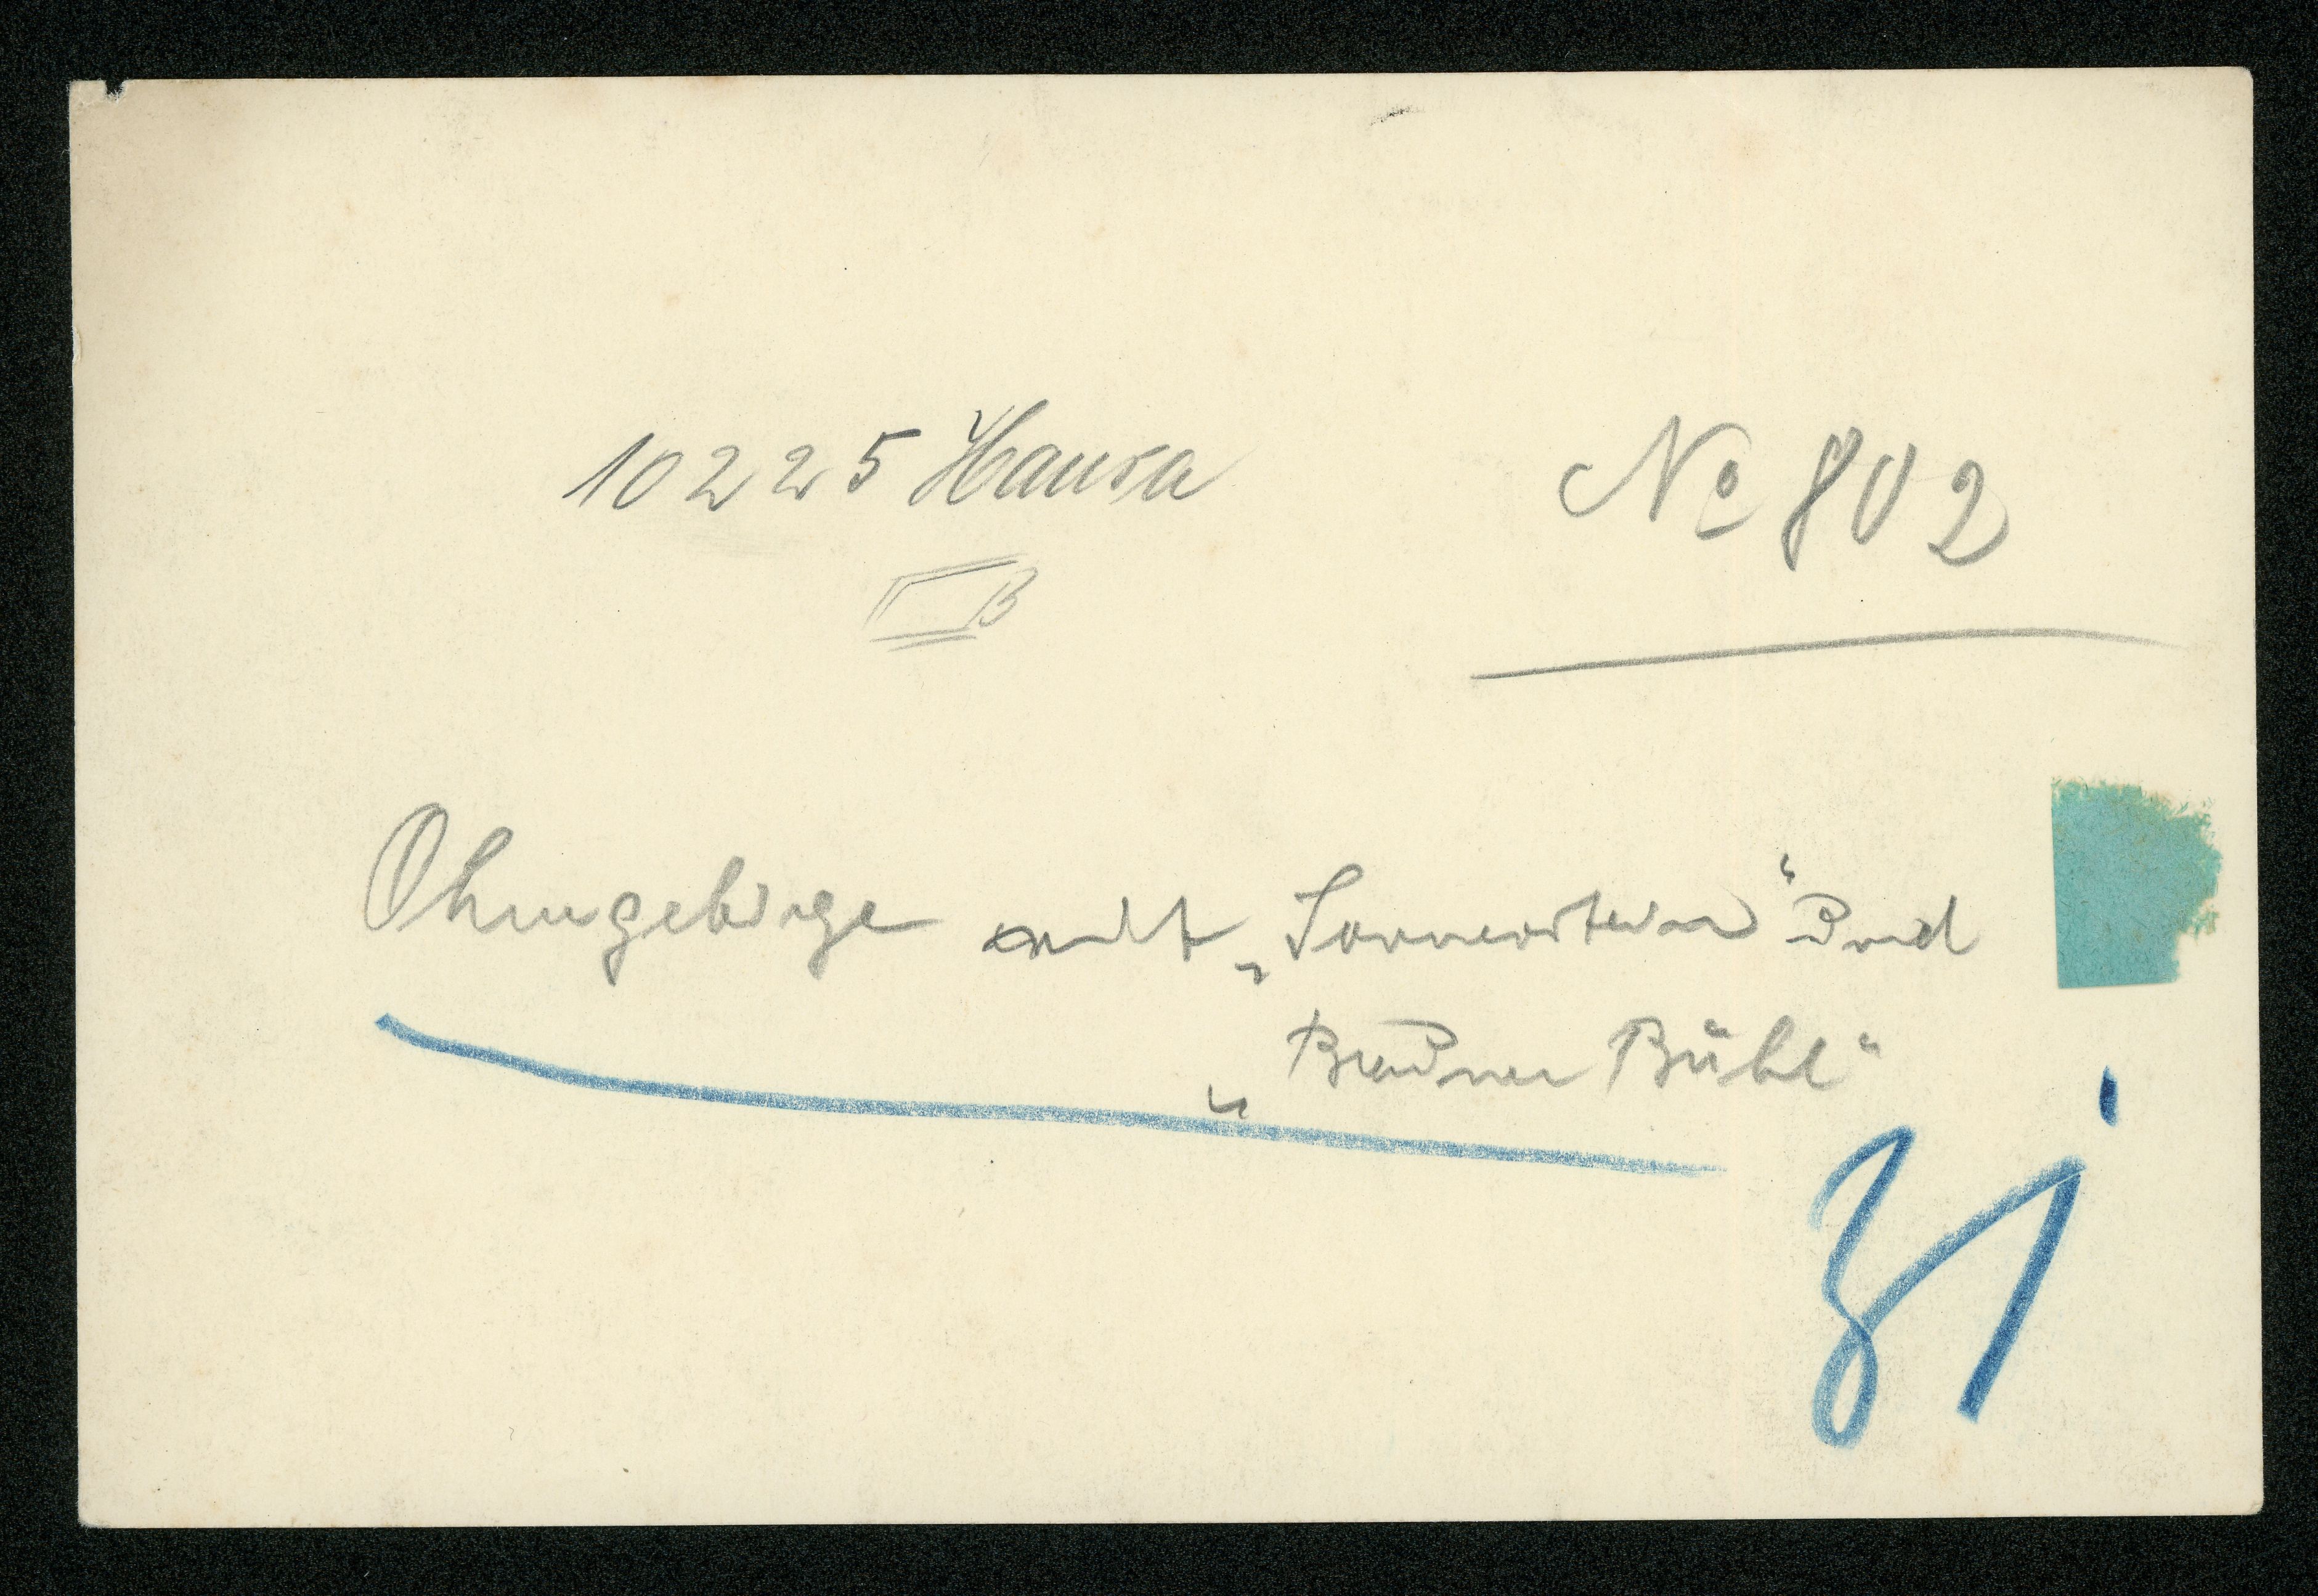 10225 Hansa
№ 802
B
Ohmgebirge mit „Sonnenstein“ und
„Brauner Bühl“